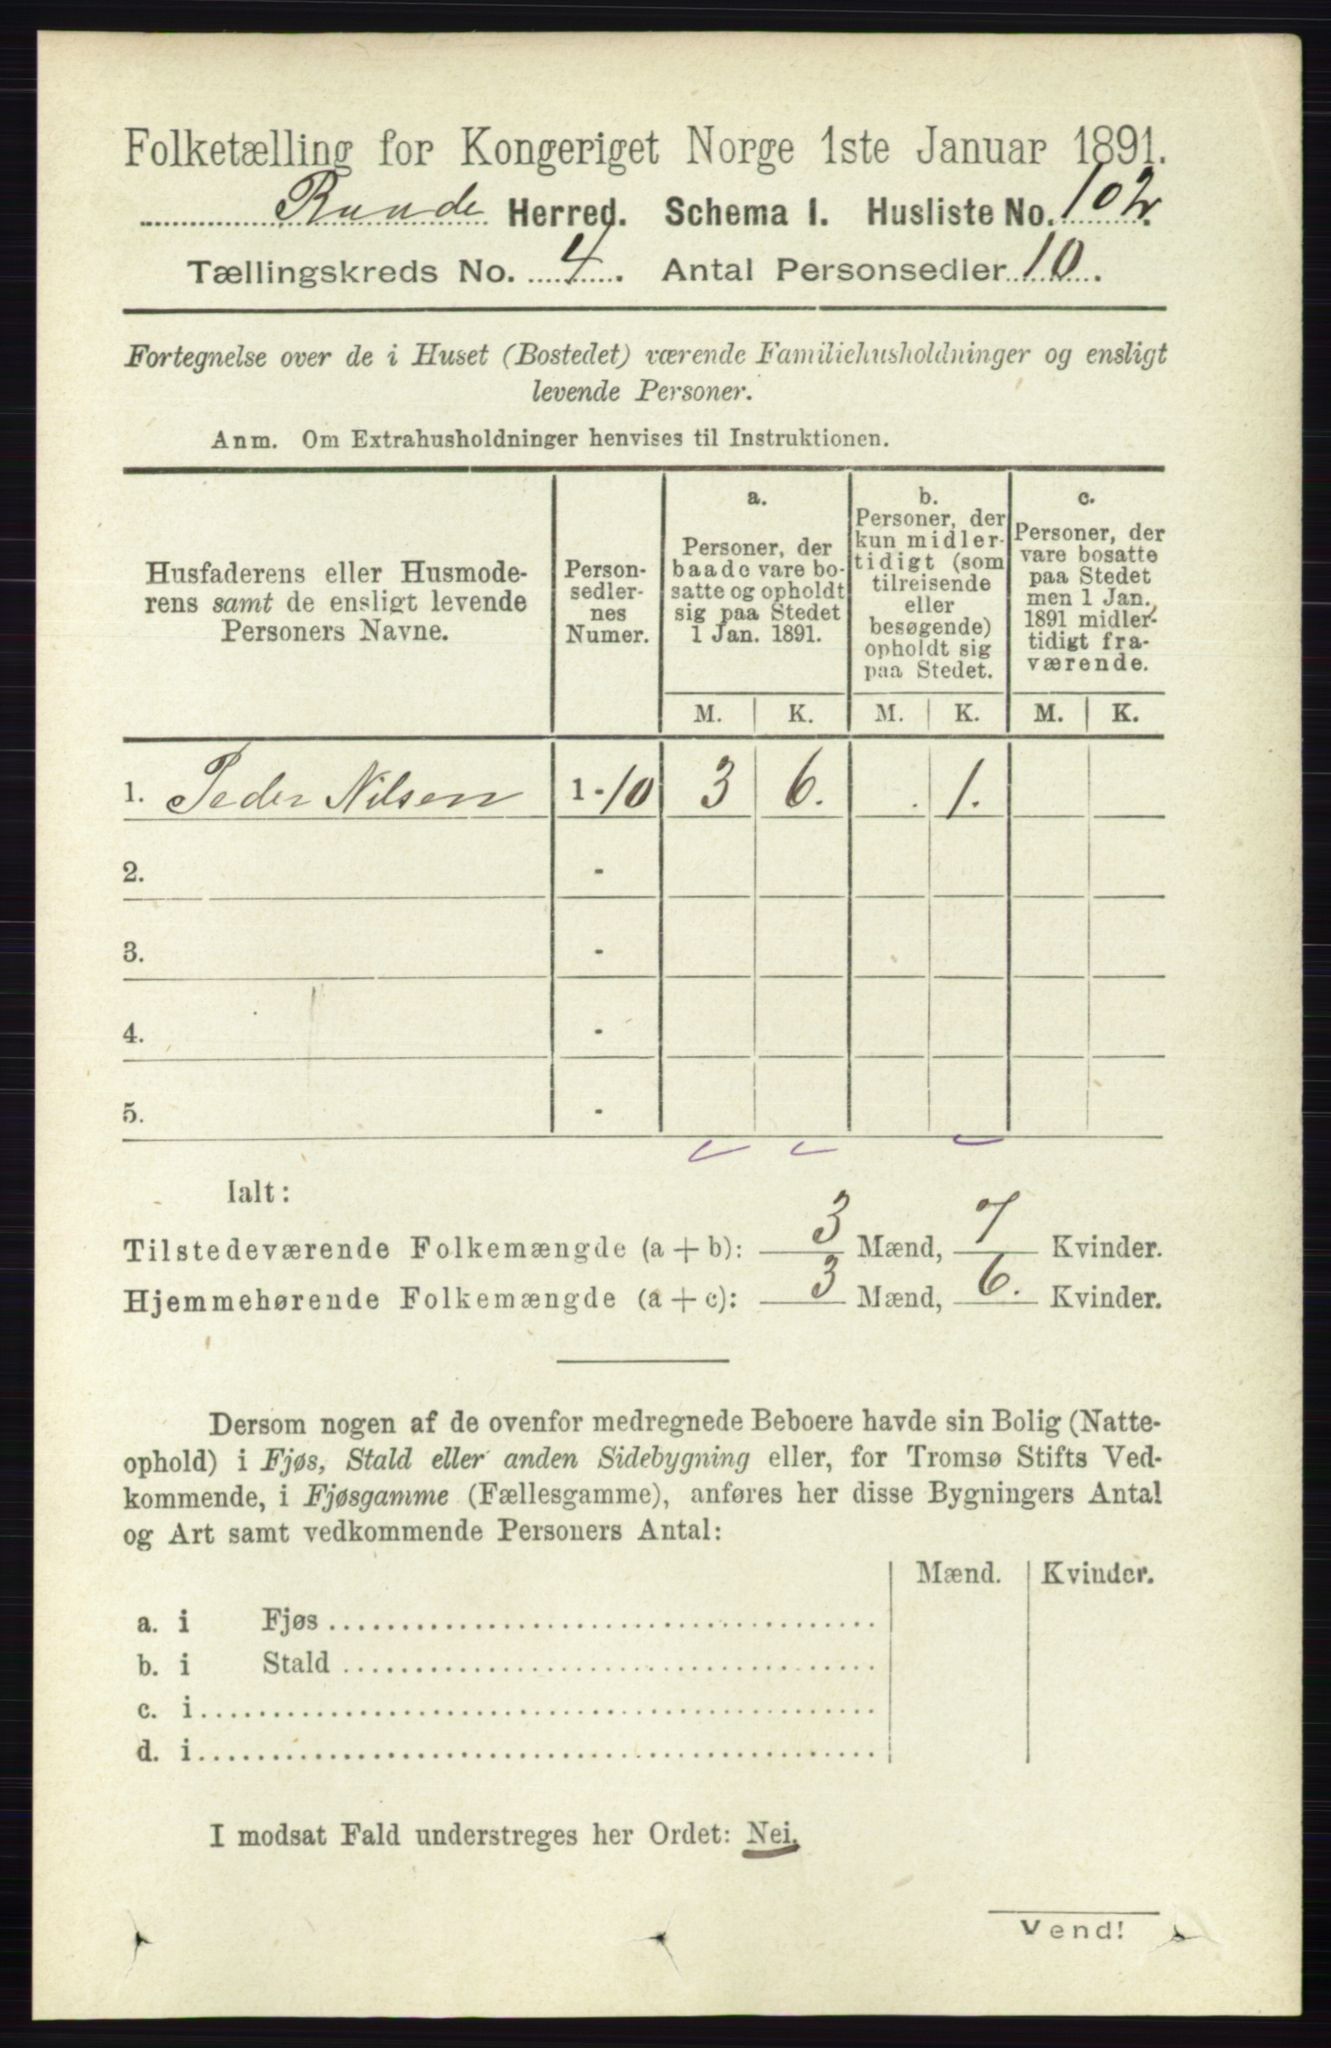 Folketælling for Kongeriget Norge 1ste Januar 1891.
Raade Herred. Schema 1. Husliste No. 102.
Tællingskreds No. 4. Antal Personsedler 10.
Fortegnelse over de i Huset (Bostedet) værende Familiehusholdninger og ensligt
levende Personer.
Anm. Om Extrahusholdninger henvises til Instruktionen.
Husfaderens eller Husmode-
rens samt de ensligt levende
Personers Navne.
Person-
sedler-
nes
Numer.
a.
Personer, der
baade vare bo-
satte og opholdt
sig paa Stedet
1 Jan. 1891.
b.
Personer, der
kun midler-
tidigt (som
tilreisende
eller
besøgende)
opholdt sig
paa Stedet.
c.
Personer, der
vare bosatte
paa Stedet
men 1 Jan.
1891 midler-
tidigt fra-
værende.
M. K. M. K. M. K.
1. Peder Nilsen 1-10 3 6. . 1.
2. -
3. -
4. -
5. -
Ialt:
Tilstedeværende Folkemængde (a + b): 3 Mænd, 7 Kvinder.
Hjemmehørende Folkemængde (a + c): 3 Mænd, 6. Kvinder.
Dersom nogen af de ovenfor medregnede Beboere havde sin Bolig (Natte-
ophold) i Fjøs, Stald eller anden Sidebygning eller, for Tromsø Stifts Ved-
kommende, i Fjøsgamme (Fællesgamme), anføres her disse Bygningers Antal
og Art samt vedkommende Personers Antal:
Mænd. Kvinder.
a. i Fjøs
b. i Stald
c. i
d. i
I modsat Fald understreges her Ordet: Nei.
Vend!